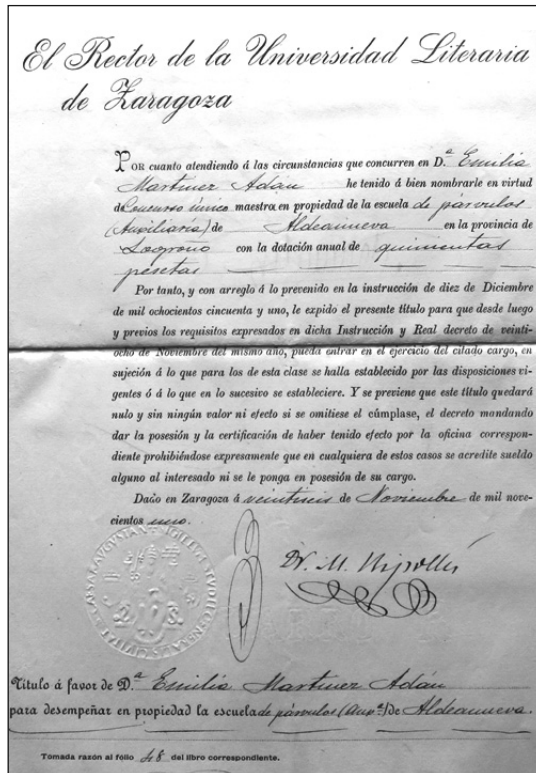 El Rector de la Universidad Literaria
de Zaragoza
POR cuanto atendiendo á las circunstancias que concurren en D.ª Emilia
Martinez Adán he tenido á bien nombrarle en virtud
de Concurso único maestra en propiedad de la escuela de párvulos
(Auxiliaria) de Aldeanueva en la provincia de
Logroño con la dotación anual de quinientas
pesetas
Por tanto, y con arreglo á lo prevenido en la instrucción de diez de Diciembre
de mil ochocientos cincuenta y uno, le expido el presente título para que desde luego
y previos los requisitos expresados en dicha Instrucción y Real decreto de veinti-
ocho de Noviembre del mismo año, pueda entrar en el ejercicio del citado cargo, en
sujeción á lo que para los de esta clase se halla establecido por las disposiciones vi-
gentes ó á lo que en lo sucesivo se estableciere. Y se previene que este título quedará
nulo y sin ningún valor ni efecto si se omitiese el cúmplase, el decreto mandando
dar la posesión y la certificación de haber tenido efecto por la oficina correspon-
diente prohibiéndose expresamente que en cualquiera de estos casos se acredite sueldo
alguno al interesado ni se le ponga en posesión de su cargo.
Dado en Zaragoza á veintiseis de Noviembre de mil nove-
cientos uno.
Dr. M. Ripollés
Título á favor de D.ª Emilia Martinez Adán
para desempeñar en propiedad la escuela de párvulos (Auxª) de Aldeanueva.
Tomada razón al folio 48 del libro correspondiente.